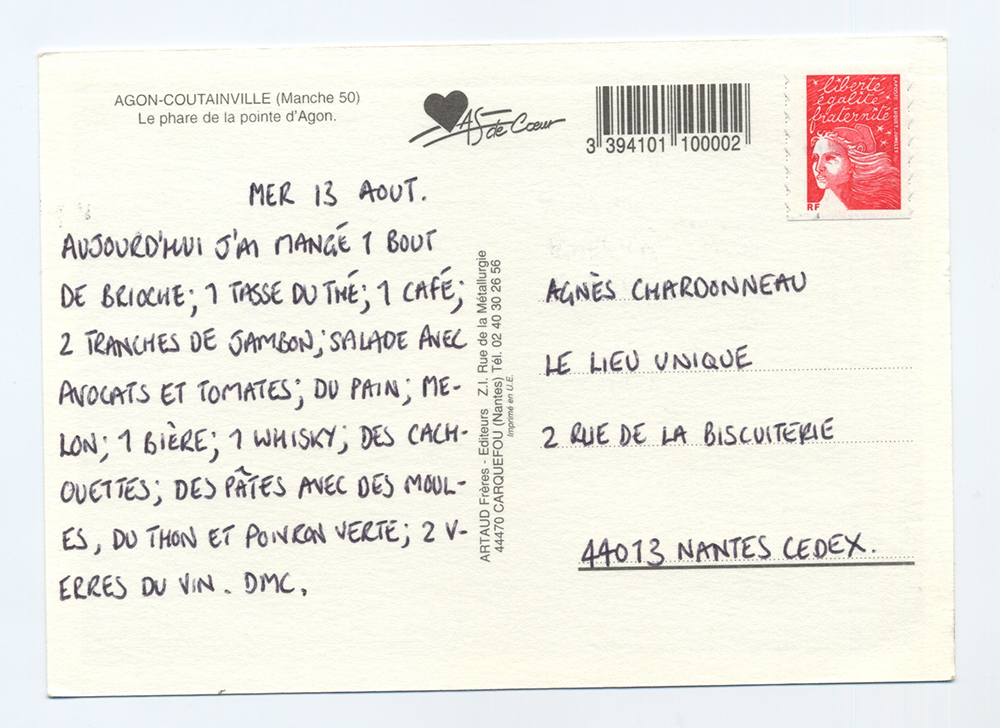 AGON-COUTAINVILLE (Manche 50)
Le phare de la pointe d'Agon.
AS de Cœur
3 394101 100002
liberté
égalité
fraternité
RF
MER 13 AOUT.
AUJOURD'HUI J'AI MANGÉ 1 BOUT
DE BRIOCHE; 1 TASSE DU THÉ; 1 CAFÉ;
2 TRANCHES DE JAMBON; SALADE AVEC
AVOCATS ET TOMATES; DU PAIN; ME-
LON; 1 BIÈRE; 1 WHISKY; DES CACH-
OUETTES; DES PÂTES AVEC DES MOUL-
ES, DU THON ET POIVRON VERTE; 2 V-
ERRES DU VIN. DMC.
ARTAUD Frères - Editeurs Z.I. Rue de la Métallurgie
44470 CARQUEFOU (Nantes) Tél. 02 40 30 26 56
Imprimé en U.E.
AGNÈS CHARDONNEAU
LE LIEU UNIQUE
2 RUE DE LA BISCUITERIE
44013 NANTES CEDEX.